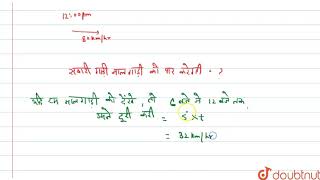 12:00 pm
80 km/hr
सवारी गाड़ी मालगाड़ी को पार करेगी - ?
यदि हम मालगाड़ी को देखें, तो 6 बजे से 12 बजे तक
दूरी = s x t
= 32 km/hr
doubtnut